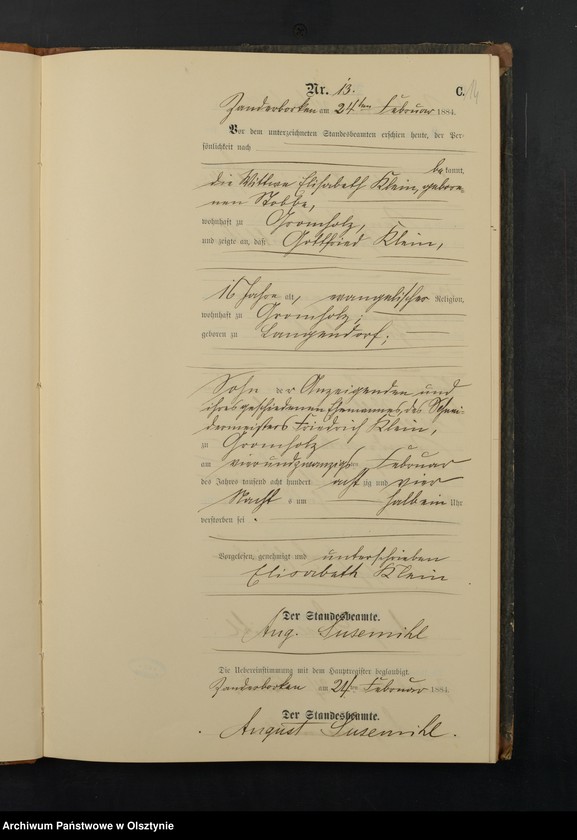 Nr. 13.
C.
14
Zanderborken am 24ten Februar 1884.
Vor dem unterzeichneten Standesbeamten erschien heute, der Per-
sönlichkeit nach
bekannt,
die Wittwe Elisabeth Klein, gebore-
nen Stobbe,
wohnhaft zu Gromholz,
und zeigte an, daß Gottfried Klein,
16 Jahre alt, evangelischer Religion,
wohnhaft zu Gromholz;
geboren zu Langendorf;
Sohn der Anzeigenden und
ihres geschiedenen Ehemannes, des Schnei-
dermeisters Friedrich Klein,
zu Gromholz
am vierundzwanzigsten Februar
des Jahres tausend acht hundert achtzig und vier
Nachts um halb ein Uhr
verstorben sei.
Vorgelesen, genehmigt und unterschrieben
Elisabeth Klein
Der Standesbeamte.
Aug. Susemihl
Die Uebereinstimmung mit dem Hauptregister beglaubigt.
Zanderborken am 24ten Februar 1884.
Der Standesbeamte.
August Susemihl.
Archiwum Państwowe w Olsztynie